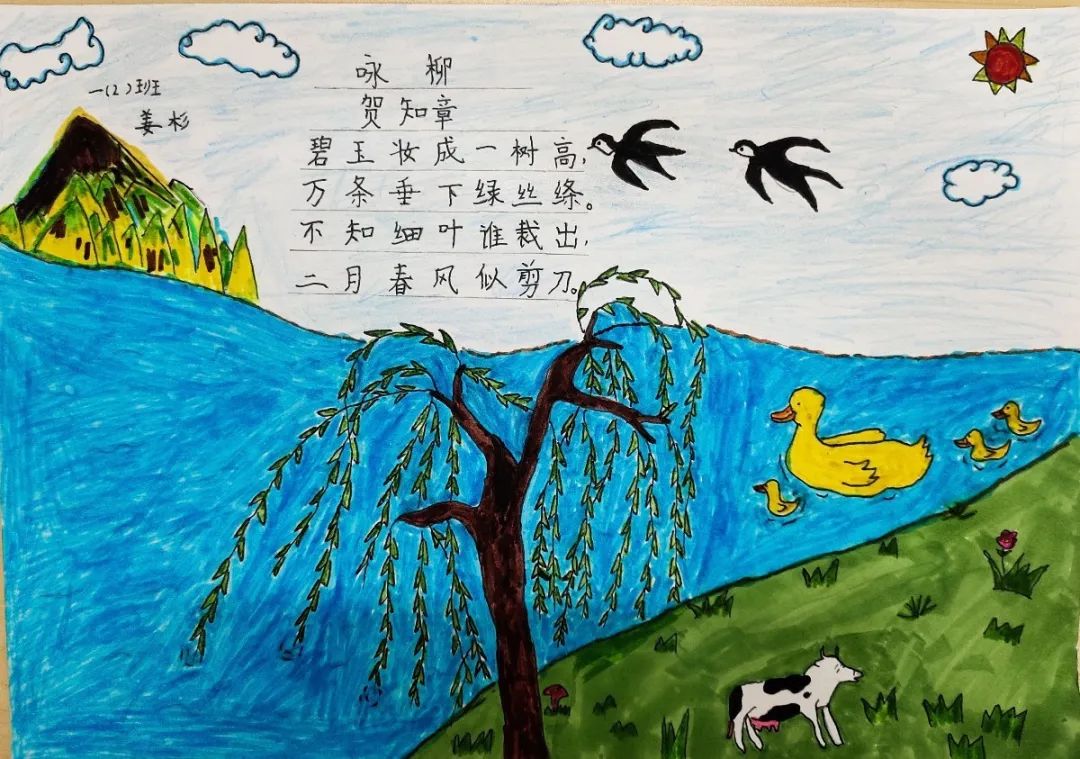 一(2)班
姜杉
咏柳
贺知章
碧玉妆成一树高,
万条垂下绿丝绦。
不知细叶谁裁出,
二月春风似剪刀。